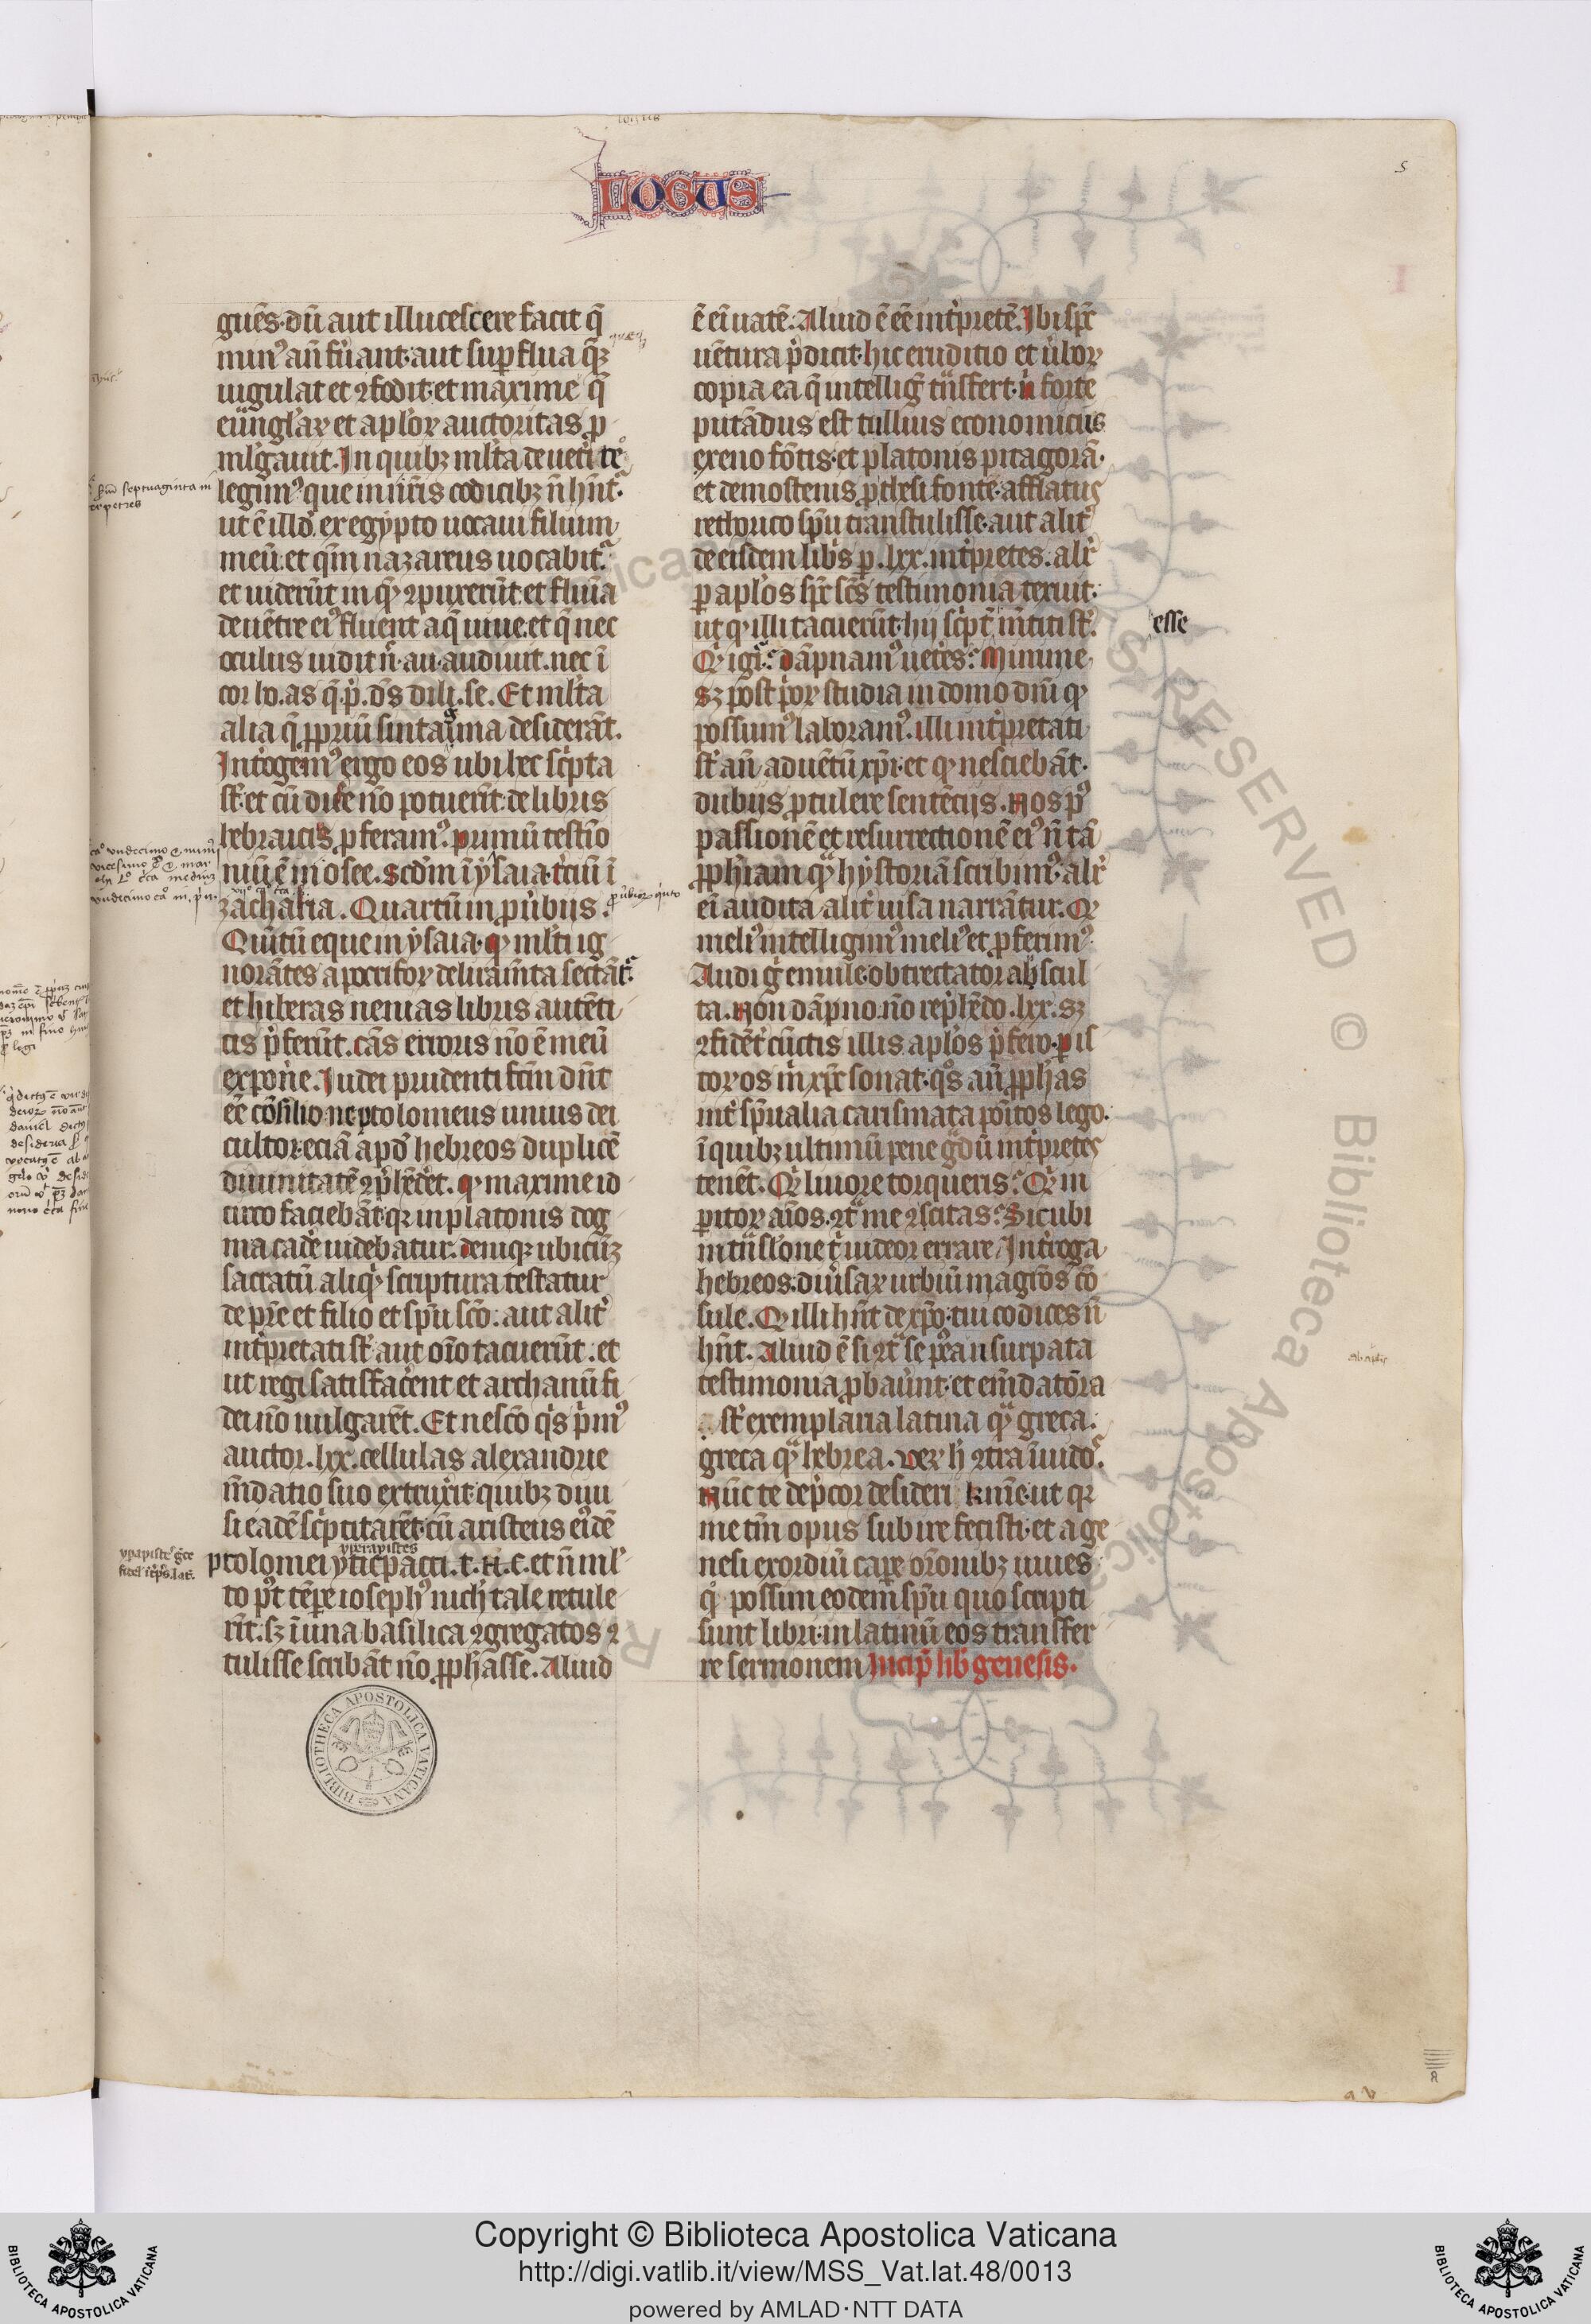 LOGUS
5
guēs. dū aut illucescere facit q̄
min᾽ ān fu᾽ant. aut sup̱flua q̄ꝫ
iugulat et ꝯfodit. et maxime q̄
eūngl᾽aꝝ et apl᾽oꝝ auctoritas ꝓ
ml᾽gauit. In quibꝫ ml᾽ta de uet᾽i te᾽
legim᾽ que in nr̄is codicibꝫ n̄ hn̄t᾽.
ut ē illd᾽. ex egypto uocaui filium
meū. et qm̄ nazareus uocabit᾽.
et uiderūt in quē ꝯpūxerūt. et flūīa
de uētre ei᾽ fluent aq̄ uiue. et q̄ nec
oculus uidit n̄. au. audiuit. nec ī
cor ho. as. q̄ p᾽. dr̄s dili. se. Et ml᾽ta
alia q̄ ꝓpriū sintagma desiderāt.
Int᾽rogem᾽ ergo eos ubi hec sc᾽pta
st᾽. et cū dice᾽ nō potuerīt. de libris
hebraicis ꝓferam᾽. primū testīo
niū ē in osee. scdm̄ ī ysaia. t᾽ciū ī
zacharia. Quartū in ꝓu᾽biis.
Quītū eque in ysaia. qd᾽ ml᾽ti ig
norātes apocrifoꝝ deliramīta sectāt᾽.
et hiberas nenias libris autēti
cis p᾽ferūt. cās erroris nō ē meū
exponere. Iudei prudenti fctm̄ dn̄t
eē cōsilio. ne ptolomeus unius dei
cultor. eciā apd᾽ hebreos duplicē
diuinitatē ꝯp᾽hēdet. qd᾽ maxime id
circo faciebāt. qꝛ in platonis dog
ma cade᾽ uidebatur. deniqꝫ ubicūqꝫ
sacratū aliqd᾽ scriptura testatur
de pr̄e et filio et sp̄u scō. aut alit᾽
int᾽pretati st᾽. aut oīo tacuerūt. et
ut regi satisface᾽nt et archanū fi
dei nō uulgarēt. Et nescio q᾽s p᾽m᾽
auctor. lxx. cellulas alexandrie
mēdatio suo extruxit. quibꝫ diui
si eadē sc᾽ptitarēt. cū aristeus ei᾽dē
ptolomei yꝑaspistes. t. n. c. et n̄ ml᾽
to p᾽t tēpe ioseph᾽ nich᾽ tale retule
rīt. sꝫ ī una basilica ꝯgregatos ꝯ
tulisse scribāt nō ꝓphasse. Aliud
ē ei᾽ uatē. Aliud ē eē int᾽pretē. Ibi sp̄c
uētura p᾽dicit. hic eruditio et u᾽boꝝ
copia ea q̄ intelligit trāsfert. n᾽ forte
putādus est tullius economicus
exenofōtis. et platonis pitagorā.
et demostenis ꝓthesifontē. afflatus
rethorico sp̄u transtulisse. aut alit᾽
de eisdem libris ꝑ. lxx. int᾽pretes. alr᾽
ꝑ apl᾽os sp̄c scs testimonia texuit.
ut qd᾽ illi tacuerūt. hii sc᾽ptū mētiti st᾽.
esse
Qd᾽ igit᾽. dāpnam᾽ uete᾽s. Minime
sꝫ post p᾽oꝝ studia in domo dn̄i qd᾽
possum᾽ laboram᾽. illi int᾽pretati
st᾽ an̄ aduētū xp̄i. et qd᾽ nesciebāt.
dubiis ꝓtulere sentēciis. Nos p᾽
passionē et resurrectionē ei᾽ n̄ tā
ꝓphiam quā hystoriā scribim᾽. alr᾽
eī audita alit᾽ uisa narrātur. Qd᾽
meli᾽ intelligim᾽ meli᾽ et ꝓferim᾽.
Audi g᾽ emule. obtrectator abscul
ta. Non dāpno. nō rep᾽hēdo. lxx. sꝫ
ꝯfidēt᾽ cūctis illis apl᾽os p᾽fero. ꝑ is
toꝝ os m᾽ xp̄c sonat. q᾽s an̄ ꝓph᾽as
int᾽ sp̄ualia carismata po᾽itos lego.
ī quibꝫ ultimū pene gdū int᾽pretes
tenēt. Qd᾽ liuore torqueris. Qd᾽ in
ꝑitoꝝ aīos ꝯt᾽ me ꝯcitas. Sicubi
in trāsl᾽one t᾽ uideor errare. Int᾽roga
hebreos. diu᾽saꝝ urbiū magros cō
sule. Qd᾽ illi hn̄t de xp̄o. tui codices n̄
hn̄t. Aliud ē si ꝯt᾽ se p᾽ea usurpata
testimonia ꝓbau᾽unt. et emēdatōra
st᾽ exemplaria latina quā greca.
greca quā hebrea. Veꝝ h᾽ ꝯtra īuido᾽.
Nūc te dep᾽cor desideri kme. ut qꝛ
me tm̄ opus subire fecisti. et a ge
nesi exordiū cape. or̄onibꝫ iuues
q᾽ possim eodem sp̄u quo scripti
sunt libri. in latinū eos transfer
re sermonem Incip᾽ lib᾽ genesis.
BIBLIOTHECA APOSTOLICA VATICANA
RESERVED © Biblioteca Apostolica
Copyright © Biblioteca Apostolica Vaticana
http://digi.vatlib.it/view/MSS_Vat.lat.48/0013
powered by AMLAD·NTT DATA
BIBLIOTECA APOSTOLICA VATICANA
BIBLIOTECA APOSTOLICA VATICANA